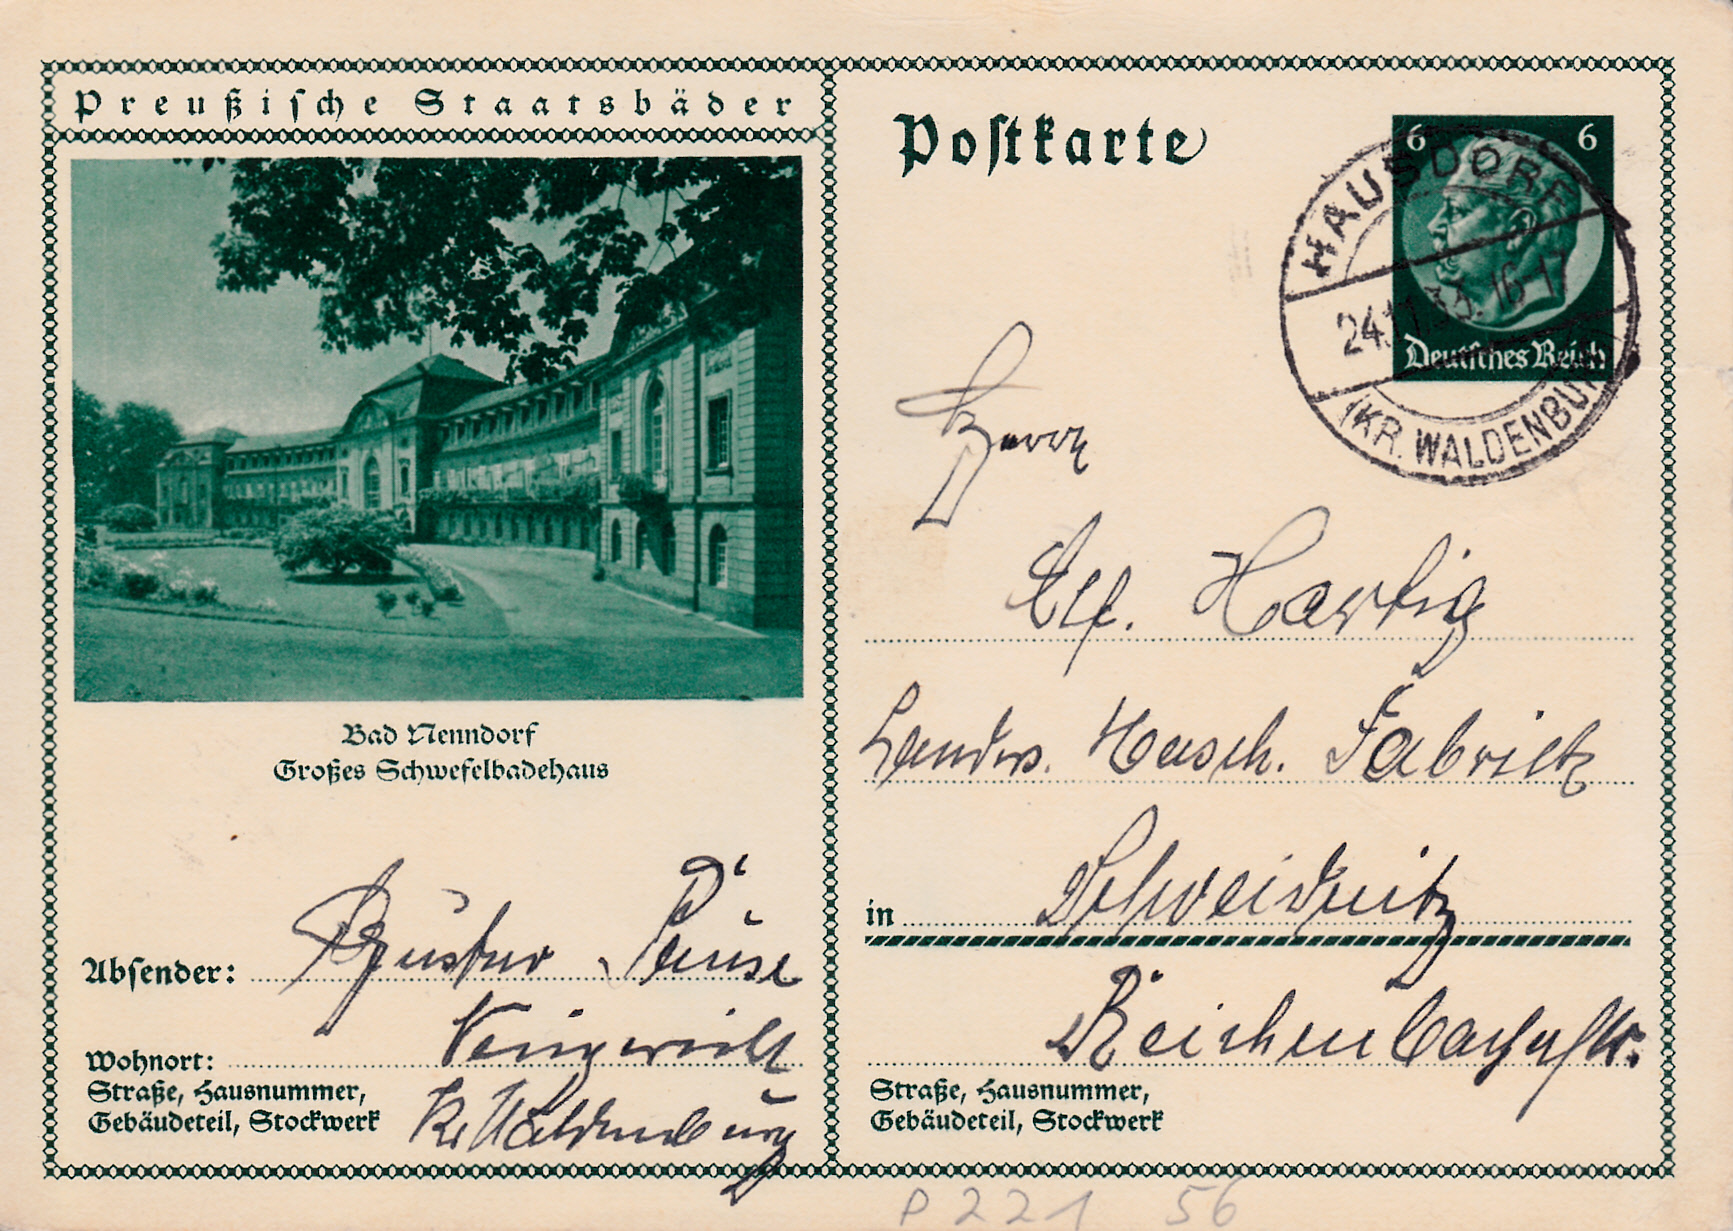 Preußische Staatsbäder
Bad Nenndorf
Großes Schwefelbadehaus
Absender:
Gustav
Wohnort:
Straße, Hausnummer,
Gebäudeteil, Stockwerk
Kr. Waldenburg
Postkarte
6 6
Deutsches Reich
HAUSDORF
33. 16-17
(KR. WALDENBURG
Herrn
Hartig
Landw. Masch. Fabrik
in Schweidnitz
Reichenbacherstr.
Straße, Hausnummer,
Gebäudeteil, Stockwerk
P 221 56